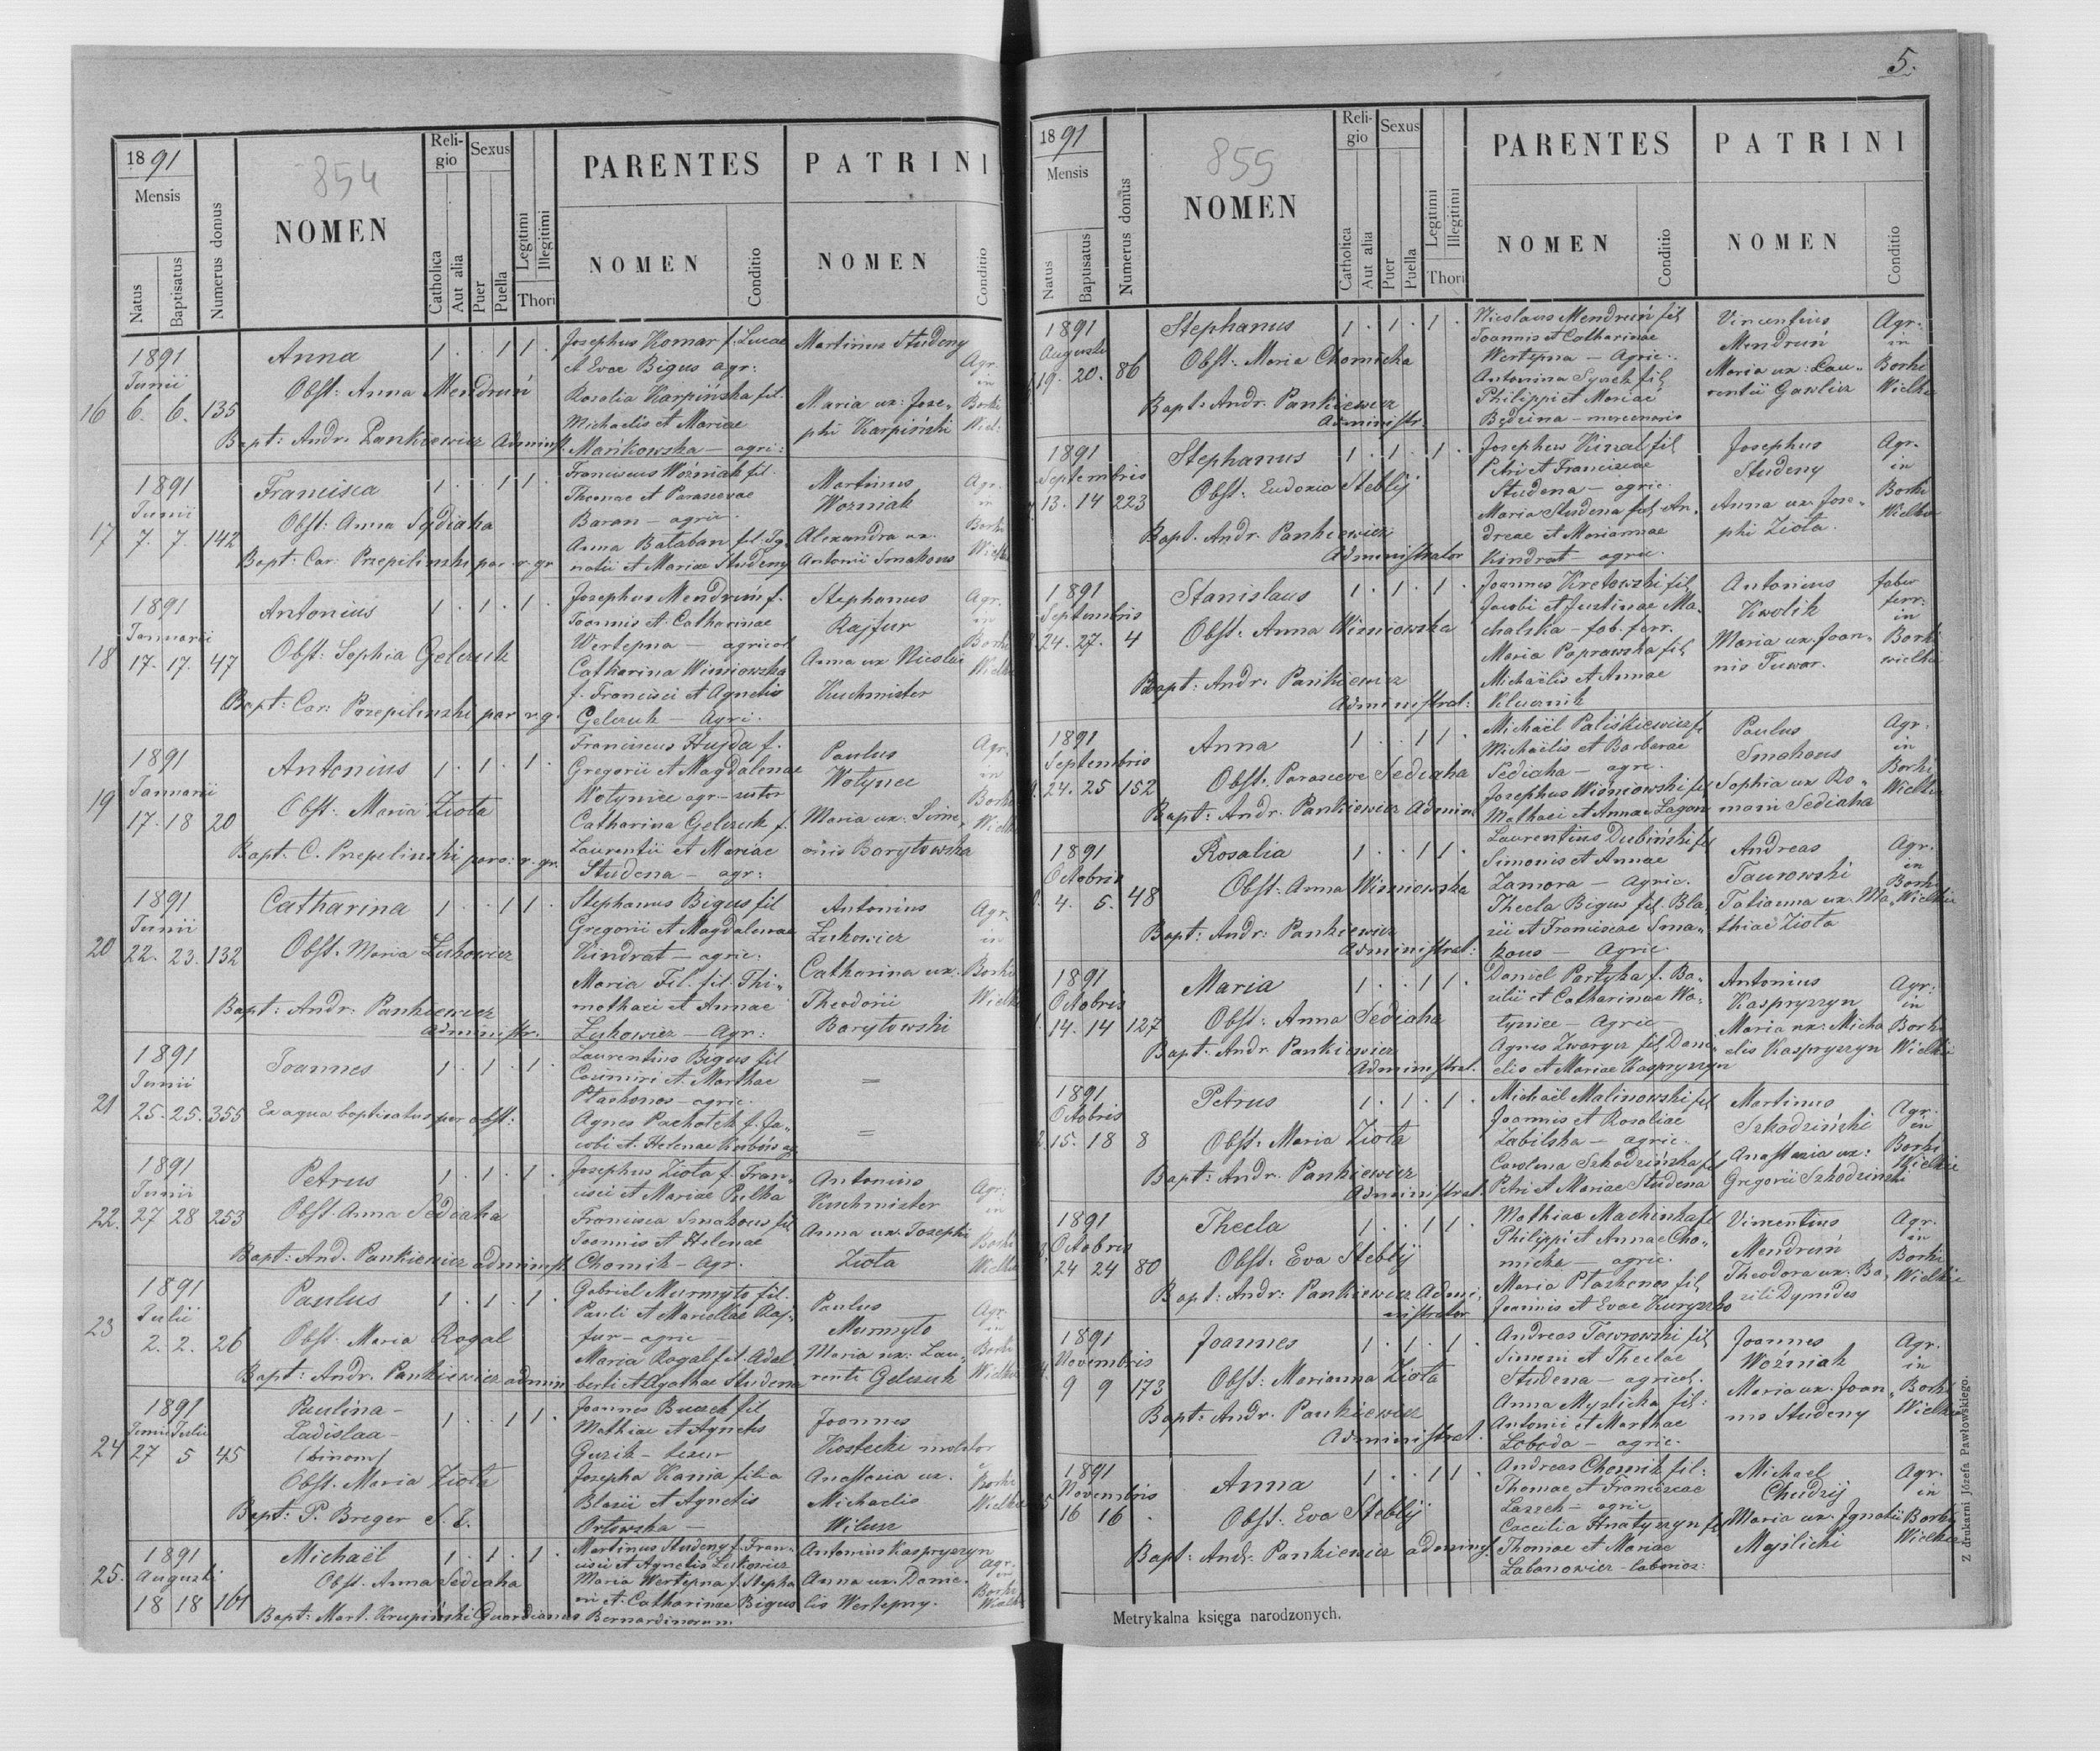 5.
1891
Mensis
Natus
Baptisatus
Numerus domus
854
NOMEN
Reli-
gio
Catholica
Aut alia
Sexus
Puer
Puella
Legitimi
Illegitimi
Thori
PARENTES
NOMEN
Conditio
PATRINI
NOMEN
Conditio
16
1891
Junii
6. 6. 135
Anna
Obst: Anna Mendruń
Bapt: Andr. Pankiewicz Administ.
1 . . 1 1 .
Josephus Komar f. Lucae
et Evae Bigus agr:
Rosalia Karpińska fil.
Michaelis et Mariae
Mańkowska — agri:
Martinus Studeny
Maria ux: Jose-
phi Karpiński
Agr.
in
Borki
Wiel:
17
1891
Junii
7. 7. 142
Francisca
Obst: Anna Sydiaha
Bapt: Car. Przepilinski par. r. gr
1 . . 1 1 .
Franciscus Woźniak fil.
Thomae et Parascevae
Baran — agric.
Anna Bałaban fil. Ig-
natii et Mariae Studeny
Martinus
Wozniak
Alexandra ux.
Antonii Smakous
Agr.
in
Borki
Wielkie
18
1891
Januarii
17. 17. 47
Antonius
Obst: Sophia Gelczuk
Bapt: Car: Przepilinski par r. g.
1 . 1 . 1 .
Josephus Mendruń f.
Joannis et Catharinae
Wertepna — agricol
Catharina Wisniowska
f. Francisci et Agnetis
Gelczuk — Agri.
Stephanus
Rajfur
Anna ux Nicolai
Kuchmister
Agr.
in
Borki
Wielkie
19
1891
Januarii
17. 18 20
Antonius
Obst. Maria Ziota
Bapt. C. Przepilinski paro: r. gr.
1 . 1 . 1 .
Franciscus Hujda f.
Gregorii et Magdalenae
Wołyniec agr.
Catharina Gelczuk f.
Laurentii et Mariae
Studena — agr:
Paulus
Wołynec
Maria ux. Sime-
onis Baryłowska
Agr.
in
Borki
Wielkie
20
1891
Junii
22. 23. 132
Catharina
Obst. Maria Łukowicz
Bapt: Andr: Pankiewicz
administr.
1 . . 1 1 .
Stephanus Bigus fil
Gregorii et Magdalenae
Kindrat — agric.
Maria Fil. fil. Thi-
mothaei et Annae
Łukowicz — Agr:
Antonius
Łukowicz
Catharina ux.
Theodorii
Baryłowski
Agr.
in
Borki
Wielkie
21
1891
Junii
25. 25. 355
Joannes
Ex aqua baptisatus per obst:
1 . 1 . 1 .
Laurentius Bigus fil
Casimiri et Marthae
Ptashonos — agric.
Agnes Pachołek f. Ja-
cobi et Helenae
=
=
22.
1891
Junii
27 28 253
Petrus
Obst. Anna Sediaha
Bapt: And. Pankiewicz administ.
1 . 1 . 1 .
Josephus Ziota f. Fran-
cisci et Mariae Pulka
Francisca Smakous fil
Joannis et Helenae
Chomik — Agr.
Antonius
Kuchmister
Anna ux. Josephi
Ziota
Agr.
in
Borki
Wielkie
23
1891
Julii
2. 2. 26
Paulus
Obst. Maria Rogal
Bapt: Andr. Pankiewicz admin
1 . 1 . 1 .
Gabriel Murmyło fil.
Pauli et Mariellae Raj-
fur — agric —
Maria Rogal fil. Adal-
berti et Agathae Studena
Paulus
Murmyło
Maria ux. Lau-
renti Gelczuk
Agr.
in
Borki
Wielkie
24
1891
Junii Julii
27 5 45
Paulina —
Ladislaa —
(binom)
Obst. Maria Ziota
Bapt: P. Breger S. J.
1 . . 1 1 .
Joannes Buczek fil
Mathiae et Agnetis
Guzik —
Josepha Kania filia
Blasii et Agnetis
Orłowska —
Joannes
Kostecki molitor
Anastasia ux.
Michaelis
Wilusz
Borki
Wielkie
25.
1891
Augusti
18 18 161
Michaël
Obst. Anna Sediaha
Bapt. Mart. Krupiński Guardianus Bernardinorum
1 . 1 . 1 .
Martinus Studeny f. Fran-
cisci et Agnetis Łukowicz
Maria Wertepna f. Stepha
ni et Catharinae Bigus
Antonius Kaspryszyn
Anna ux. Danie-
lis Wertepny.
Agr.
in
Borki
Wielkie
1891
Mensis
Natus
Baptisatus
Numerus domus
855
NOMEN
Reli-
gio
Catholica
Aut alia
Sexus
Puer
Puella
Legitimi
Illegitimi
Thori
PARENTES
NOMEN
Conditio
PATRINI
NOMEN
Conditio
1891
Augusti
19. 20. 86
Stephanus
Obst: Maria Chomicka
Bapt: Andr. Pankiewicz
Administr.
1 . 1 . 1 .
Nicolaus Mendruń fil
Joannis et Catharinae
Wertepna — Agric.
Antonina Syrek fil
Philippi et Mariae
Będzina — mercenaris
Vincentius
Mendruń
Maria ux: Lau-
rentii Gawlicz
Agr.
in
Borki
Wielkie
1891
Septembris
13. 14 223
Stephanus
Obst: Eudoxia Steblij
Bapt. Andr. Pankiewicz
Administrator
1 . 1 . 1 .
Josephus Kinal fil
Petri et Franciscae
Studena — agric.
Maria Studena fil. An-
dreae et Mariannae
Kindrat — agric.
Josephus
Studeny
Anna ux. Jose-
phi Ziota.
Agr.
in
Borki
Wielkie
1891
Septembris
24. 27. 4
Stanislaus
Obst: Anna Wisniowska
Bapt: Andr: Pankiewicz
Administrat:
1 . 1 . 1 .
Joannes Kretowski fil
Jacobi et Justinae Ma-
chalska — fab. ferr.
Maria Poprawska fil
Michaëlis et Annae
Klucznik
Antonius
Kwolik
Maria ux. Joan-
nis Tuwar.
faber
ferr:
in
Borki
wielkie
1891
Septembris
24. 25 152
Anna
Obst. Parasceve Sediaha
Bapt: Andr: Pankiewicz Admin.
1 . . 1 1 .
Michaël Paliśkiewicz f
Michaëlis et Barbarae
Sediaha — agric.
Josephus Wisniowski fil
Mathaei et Annae Lagom
Paulus
Smakous
Sophia ux Ro-
mani Sediaha
Agr.
in
Borki
Wielkie
1891
Octobris
4. 5. 48
Rosalia
Obst. Anna Wisniowska
Bapt: Andr: Pankiewicz
Administrat:
1 . . 1 1 .
Laurentius Dubiński fil
Simonis et Annae
Zamora — Agric.
Thecla Bigus fil. Bla-
sii et Franciscae Sma-
kous — Agric.
Andreas
Taurowski
Tatianna ux. Ma-
thiae Ziota
Agr.
in
Borki
Wielkie
1891
Octobris
14. 14 127
Maria
Obst: Anna Sediaha
Bapt. Andr. Pankiewicz
Administrat.
1 . . 1 1 .
Daniel Partyka f. Ba-
silii et Catharinae Wo-
łyniec — Agric —
Agnes Zwarycz fil Dani-
elis et Mariae Kaspryszyn
Antonius
Kaspryszyn
Maria ux: Micha
elis Kaspryszyn
Agr:
in
Borki
Wielkie
1891
Octobris
15. 18 8
Petrus
Obst. Maria Ziota
Bapt: Andr. Pankiewicz
Administrat.
1 . 1 . 1 .
Michaël Malinowski fil
Joannis et Rosaliae
Zabilska — agric.
Carolina Szkodzińska fil
Petri et Mariae Studena
Martinus
Szkodziński
Anastasia ux:
Gregorii Szkodzinski
Agr.
in
Borki
Wielkie
1891
Octobris
24 24 80
Thecla
Obst: Eva Steblij
Bapt: Andr: Pankiewicz Admi-
nistrator
1 . . 1 1 .
Mathias Machinka fil
Philippi et Annae Cho-
micka — agric.
Maria Ptashonos fil
Joannis et Evae Kuryszko
Vincentius
Mendruń
Theodora ux. Ba-
sili Dymides
Agr.
in
Borki
Wielkie
1891
Novembris
9 9 173
Joannes
Obst: Marianna Ziota
Bapt: Andr. Pankiewicz
Administrat.
1 . 1 . 1 .
Andreas Tawrowski fil
Simeni et Theclae
Studena — agricol.
Anna Myslicka fil:
Antonii et Marthae
Łoboda — agric.
Joannes
Woźniak
Maria ux. Joan-
nis Studeny
Agr.
in
Borki
Wielkie
1891
Novembris
16 16 .
Anna
Obst: Eva Steblij
Bapt: Andr: Pankiewicz admin
1 . . 1 1 .
Andreas Chomik fil:
Thomae et Franciscae
Laszek — agric
Caecilia Hnatyszyn fil
Thomae et Mariae
Labanowicz — labonos:
Michael
Chudzij
Maria ux. Ignatii
Myslicki
Agr.
in
Borki
Wielkie
Metrykalna księga narodzonych.
Z drukarni Józefa Pawłowskiego.